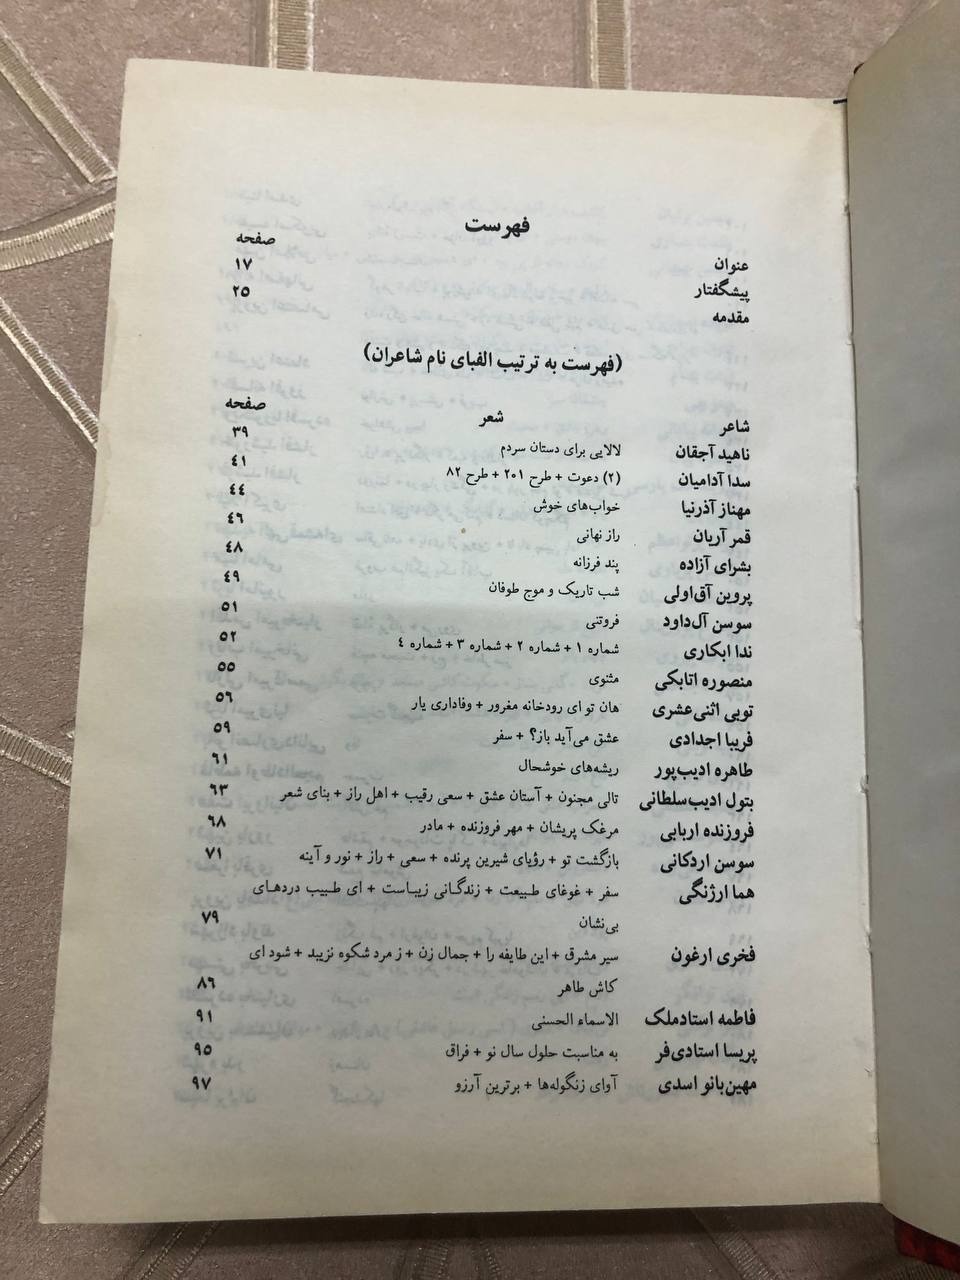 فهرست
صفحه
عنوان ۱۷
پیشگفتار ۲۵
مقدمه
(فهرست به ترتیب الفبای نام شاعران)
شاعر شعر صفحه
ناهید آجقان لالایی برای دستان سردم ۳۹
سدا آدامیان (۲) دعوت + طرح ۲۰۱ + طرح ۸۲ ۴۱
مهناز آذرنیا خواب‌های خوش ۴۴
قمر آریان راز نهانی ۴۶
بشرای آزاده پند فرزانه ۴۸
پروین آق‌اولی شب تاریک و موج طوفان ۴۹
سوسن آل‌داود فروتنی ۵۱
ندا ابکاری شماره ۱ + شماره ۲ + شماره ۳ + شماره ۴ ۵۲
منصوره اتابکی مثنوی ۵۵
توبی اثنی‌عشری هان تو ای رودخانه مغرور + وفاداری یار ۵۶
فریبا اجدادی عشق می‌آید باز؟ + سفر ۵۹
طاهره ادیب‌پور ریشه‌های خوشحال ۶۱
بتول ادیب‌سلطانی تالی مجنون + آستان عشق + سعی رقیب + اهل راز + بنای شعر ۶۳
فروزنده اربابی مرغک پریشان + مهر فروزنده + مادر ۶۸
سوسن اردکانی بازگشت تو + رؤیای شیرین پرنده + سعی + راز + نور و آینه ۷۱
هما ارژنگی سفر + غوغای طبیعت + زندگانی زیباست + ای طبیب دردهای
بی‌نشان ۷۹
فخری ارغون سیر مشرق + این طایفه را + جمال زن + ز مرد شکوه نزیبد + شود ای
کاش طاهر ۸۶
فاطمه استادملک الاسماء الحسنی ۹۱
پریسا استادی‌فر به مناسبت حلول سال نو + فراق ۹۵
مهین‌بانو اسدی آوای زنگوله‌ها + برترین آرزو ۹۷